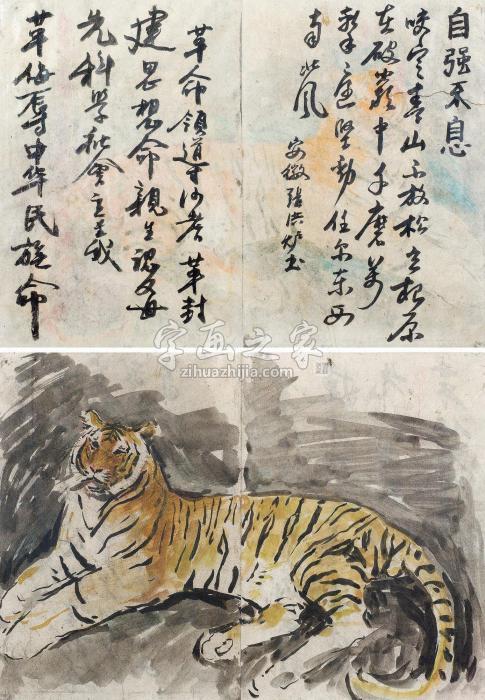 自强不息
咬定青山不放松立根原
在破岩中千磨万
击还坚劲任尔东西
南北风
安徽
革命領道 革封
建思想命親生認父母
先科學社会主义我
革侮辱中华民族命
字画之家
zihuazhijia.com